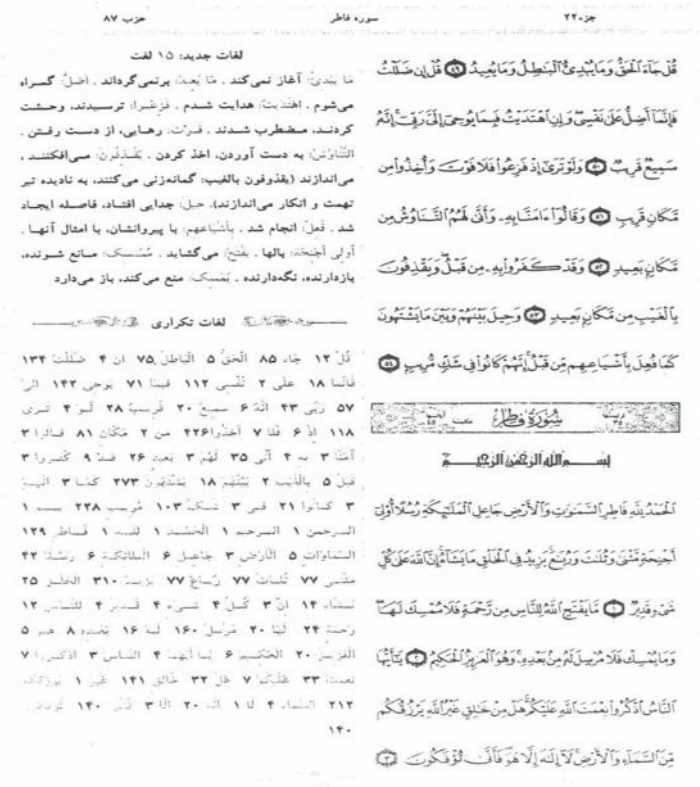 جزء ۲۲ سوره فاطر حزب ۸۷
قُلْ جَآءَ ٱلْحَقُّ وَمَا يُبْدِئُ ٱلْبَٰطِلُ وَمَا يُعِيدُ ﴿۴۹﴾ قُلْ إِن ضَلَلْتُ
فَإِنَّمَآ أَضِلُّ عَلَىٰ نَفْسِى وَإِنِ ٱهْتَدَيْتُ فَبِمَا يُوحِىٓ إِلَىَّ رَبِّىٓ إِنَّهُۥ
سَمِيعٌ قَرِيبٌ ﴿۵۰﴾ وَلَوْ تَرَىٰٓ إِذْ فَزِعُوا۟ فَلَا فَوْتَ وَأُخِذُوا۟ مِن
مَّكَانٍ قَرِيبٍ ﴿۵۱﴾ وَقَالُوٓا۟ ءَامَنَّا بِهِۦ وَأَنَّىٰ لَهُمُ ٱلتَّنَاوُشُ مِن
مَّكَانٍۭ بَعِيدٍ ﴿۵۲﴾ وَقَدْ كَفَرُوا۟ بِهِۦ مِن قَبْلُ وَيَقْذِفُونَ
بِٱلْغَيْبِ مِن مَّكَانٍۭ بَعِيدٍ ﴿۵۳﴾ وَحِيلَ بَيْنَهُمْ وَبَيْنَ مَا يَشْتَهُونَ
كَمَا فُعِلَ بِأَشْيَاعِهِم مِّن قَبْلُ إِنَّهُمْ كَانُوا۟ فِى شَكٍّ مُّرِيبٍۭ ﴿۵۴﴾
سُورَةُ فَاطِرٍ
بِسْمِ ٱللَّهِ ٱلرَّحْمَٰنِ ٱلرَّحِيمِ
ٱلْحَمْدُ لِلَّهِ فَاطِرِ ٱلسَّمَٰوَٰتِ وَٱلْأَرْضِ جَاعِلِ ٱلْمَلَٰٓئِكَةِ رُسُلًا أُو۟لِىٓ
أَجْنِحَةٍ مَّثْنَىٰ وَثُلَٰثَ وَرُبَٰعَ يَزِيدُ فِى ٱلْخَلْقِ مَا يَشَآءُ إِنَّ ٱللَّهَ عَلَىٰ كُلِّ
شَىْءٍ قَدِيرٌ ﴿۱﴾ مَّا يَفْتَحِ ٱللَّهُ لِلنَّاسِ مِن رَّحْمَةٍ فَلَا مُمْسِكَ لَهَا
وَمَا يُمْسِكْ فَلَا مُرْسِلَ لَهُۥ مِنۢ بَعْدِهِۦ وَهُوَ ٱلْعَزِيزُ ٱلْحَكِيمُ ﴿۲﴾ يَٰٓأَيُّهَا
ٱلنَّاسُ ٱذْكُرُوا۟ نِعْمَتَ ٱللَّهِ عَلَيْكُمْ هَلْ مِنْ خَٰلِقٍ غَيْرُ ٱللَّهِ يَرْزُقُكُم
مِّنَ ٱلسَّمَآءِ وَٱلْأَرْضِ لَآ إِلَٰهَ إِلَّا هُوَ فَأَنَّىٰ تُؤْفَكُونَ ﴿۳﴾
لغات جدید: ۱۵ لغت
مَا یُبْدِئُ: آغاز نمی‌کند . مَا یُعِیدُ: برنمی‌گرداند . اَضِلُّ: گمراه
می‌شوم . اهْتَدَیْتُ: هدایت شدم . فَزِعُوا: ترسیدند، وحشت
کردند، مضطرب شدند . فَوْتَ: رهایی، از دست رفتن .
التَّنَاوُشُ: به دست آوردن، اخذ کردن . یَقْذِفُونَ: می‌افکنند ،
می‌اندازند (یقذفون بالغیب: گمانه‌زنی می‌کنند، به نادیده تیر
تهمت و انکار می‌اندازند). حِیلَ: جدایی افتاد، فاصله ایجاد
شد . فُعِلَ: انجام شد . بِأَشْیَاعِهِم: با پیروانشان، با امثال آنها .
أولِی أَجْنِحَة: بالها . یَفْتَحِ: می‌گشاید . مُمْسِکَ: مانع شونده،
بازدارنده، نگه‌دارنده . یُمْسِک: منع می‌کند، باز می‌دارد
لغات تکراری
قُلْ ۱۲ جَاءَ ۸۵ الْحَقُّ ۵ الْبَاطِلُ ۷۵ اِن ۴ ضَلَلْتُ ۱۳۴
فَاِنَّمَا ۱۸ عَلی ۲ نَفْسِی ۱۱۲ فَبِمَا ۷۱ یوحی ۱۴۲ اِلیَّ
۵۷ رَبّی ۴۳ اِنَّهُ ۶ سمیعٌ ۲۰ قَریبٌ ۲۸ لَو ۴ تَری
۱۱۸ اِذ ۶ فَلا ۷ اُخِذُوا ۴۲۶ مِن ۲ مَکَان ۸۱ قالوا ۳
آمَنَّا ۳ بِهِ ۴ اَنّی ۳۵ لَهُمْ ۳ بَعید ۲۶ قَد ۹ کَفَروا ۳
قَبلُ ۵ بِالْغَیْبِ ۲ بَیْنَهُمْ ۱۸ یَشْتَهُونَ ۲۷۳ کَمَا ۳
۳ کانوا ۲۱ فی ۳ شَکّ ۱۰۳ مُریب ۲۲۸ بسم ۱
الرحمن ۱ الرحیم ۱ الْحَمْدُ ۱ لِلّه ۱ فاطر ۱۲۹
السَّمَاوَات ۵ الْاَرْض ۳ جَاعِل ۶ الْمَلائکة ۶ رُسُلاً ۴۲
مَثْنَی ۷۷ ثُلاثَ ۷۷ رُبَاعَ ۷۷ یزید ۳۱۰ الْخَلْقِ ۲۵
یَشَاءُ ۱۴ اِنَّ ۳ کُلِّ ۴ شیء ۴ قَدیر ۴ لِلنّاس ۱۲
رَحمَة ۲۴ لَهَا ۲۰ مُرْسِلَ ۱۶۰ لَهُ ۱۶ بَعْدِهِ ۸ هو ۵
الْعَزیز ۲۰ الْحَکِیم ۶ یَا اَیُّهَا ۴ النَّاس ۳ اذکُرُوا ۷
نعمت ۳۳ عَلَیْکُمْ ۷ هَلْ ۳۲ خَالِق ۱۴۱ غَیْر ۱ یَرْزُقُکُم
۲۱۲ السَّمَاء ۴ لَا ۱ اله ۲۰ اِلّا ۳ فَاَنّی ۱۴۰
۱۴۰